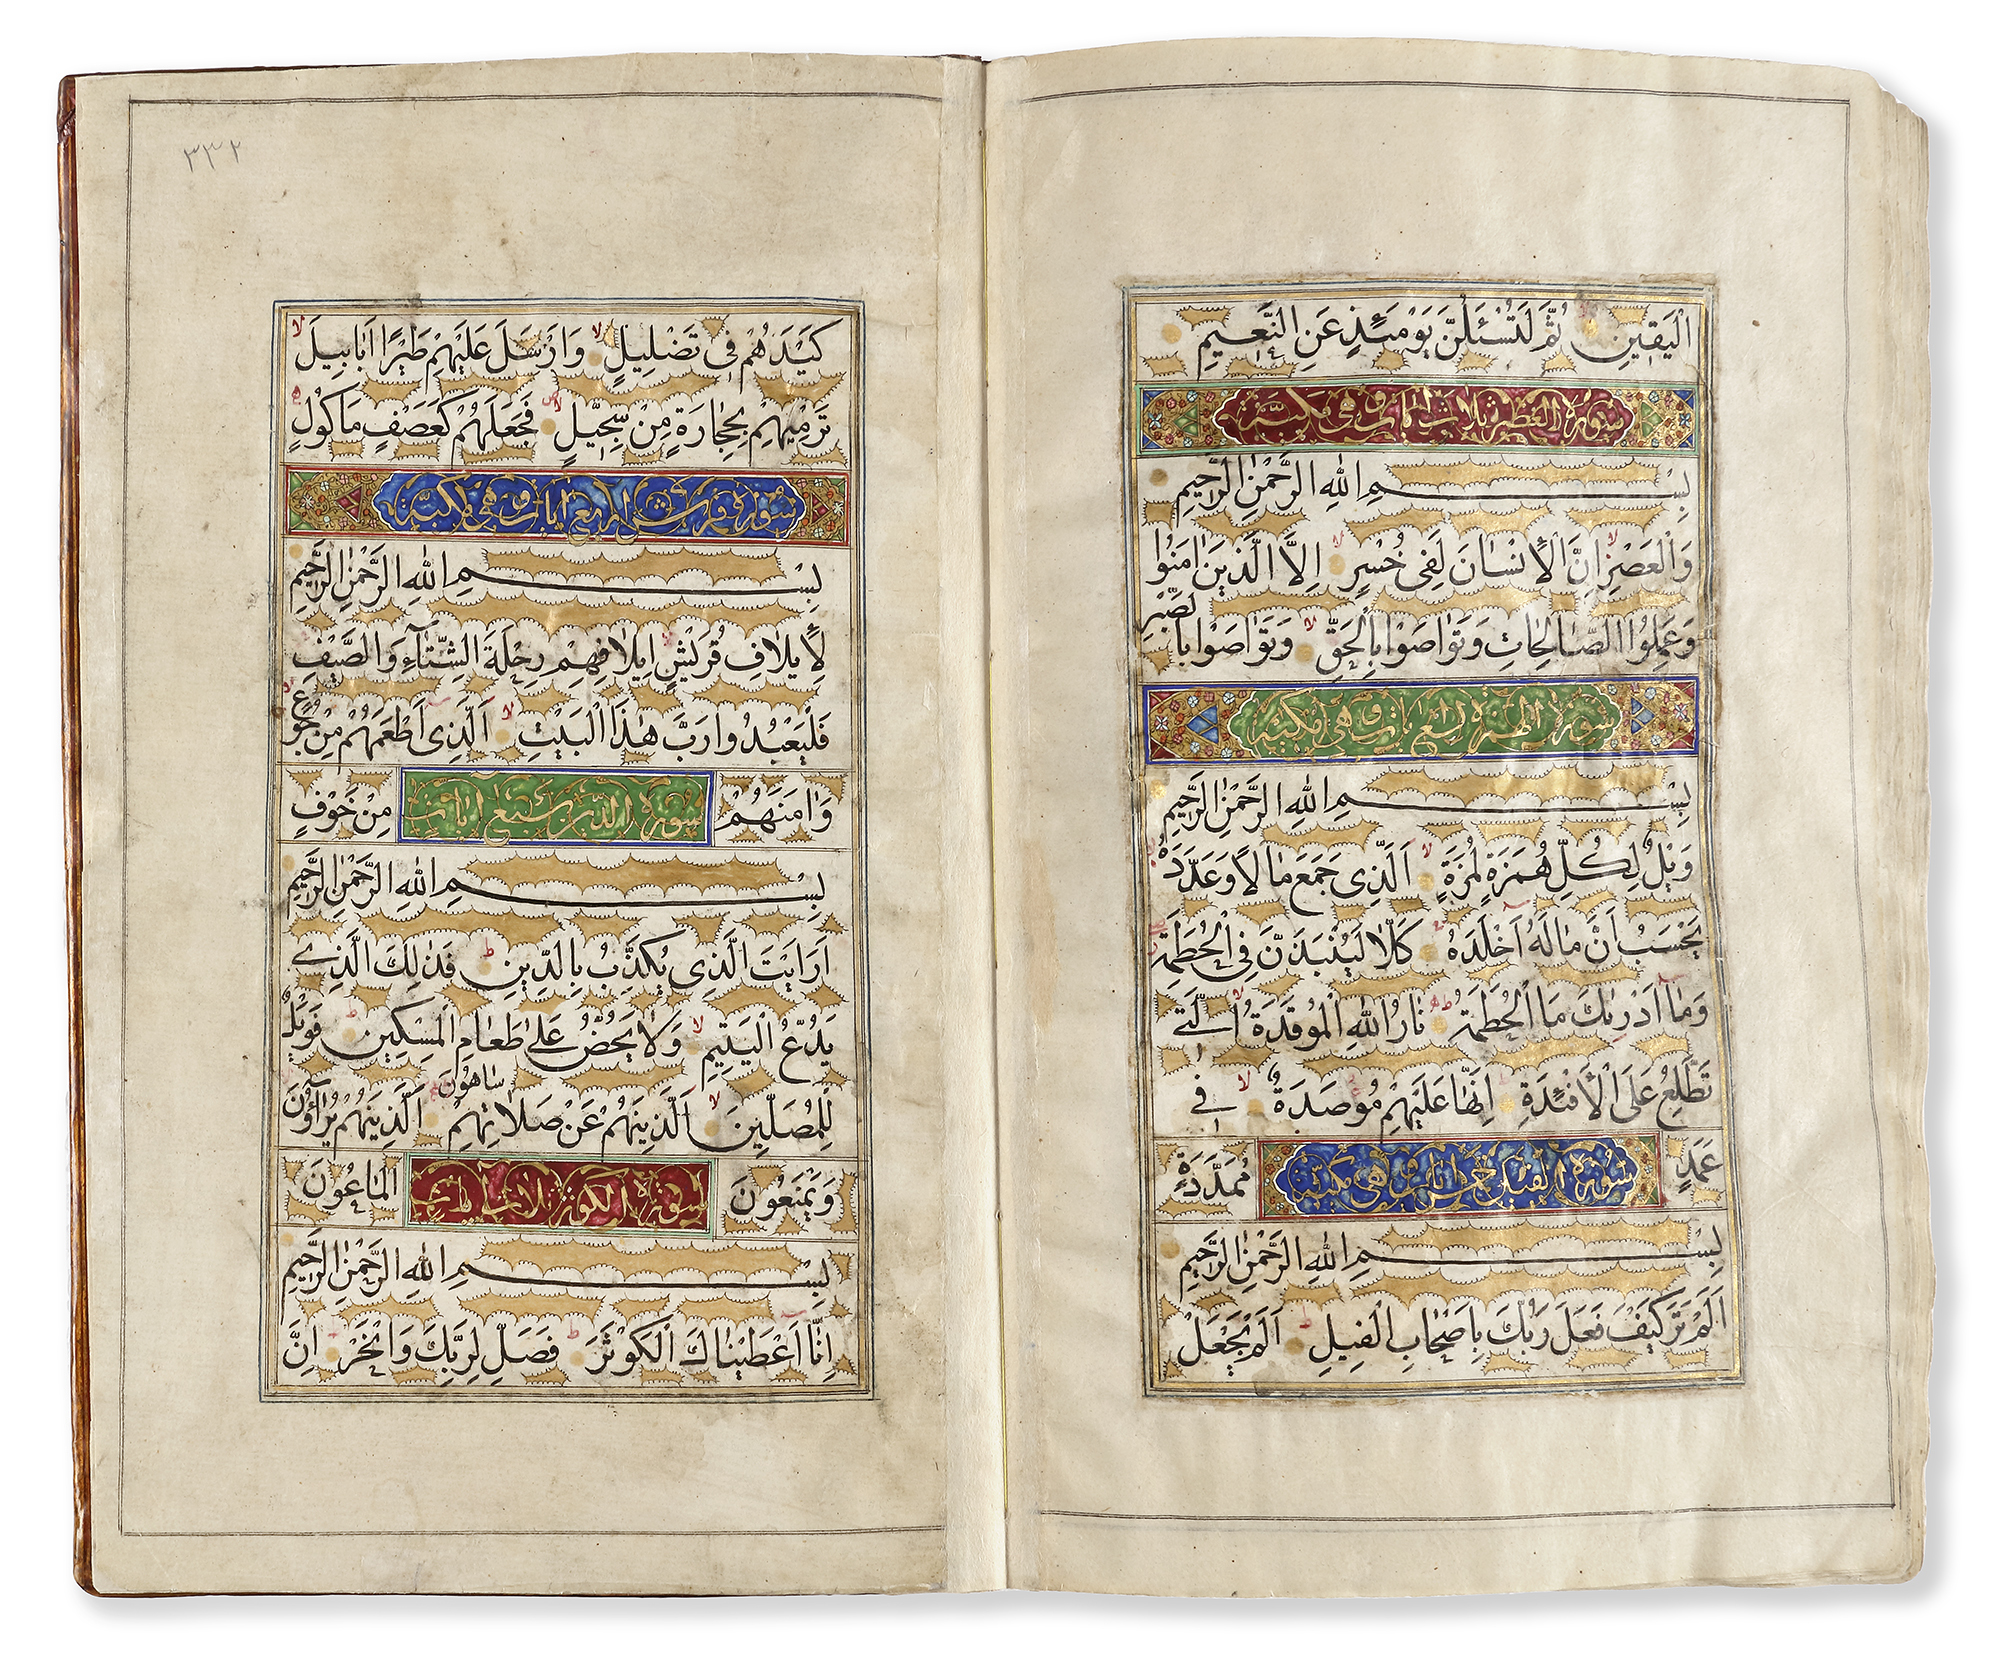 الْيَقِينِ ثُمَّ لَتُسْئَلُنَّ يَوْمَئِذٍ عَنِ النَّعِيمِ
سورة العصر ثلاث آيات وهي مكية
بِسْمِ اللهِ الرَّحْمٰنِ الرَّحِيمِ
وَالْعَصْرِ اِنَّ الْاِنْسَانَ لَفِى خُسْرٍ اِلَّا الَّذِينَ اٰمَنُوا
وَعَمِلُوا الصَّالِحَاتِ وَتَوَاصَوْا بِالْحَقِّ وَتَوَاصَوْا بِالصَّبْرِ
سورة الهمزة تسع آيات وهي مكية
بِسْمِ اللهِ الرَّحْمٰنِ الرَّحِيمِ
وَيْلٌ لِكُلِّ هُمَزَةٍ لُمَزَةٍ اَلَّذِى جَمَعَ مَالًا وَعَدَّدَهُ
يَحْسَبُ اَنَّ مَالَهُ اَخْلَدَهُ كَلَّا لَيُنْبَذَنَّ فِى الْحُطَمَةِ
وَمَا اَدْرٰيكَ مَا الْحُطَمَةُ نَارُ اللهِ الْمُوقَدَةُ اَلَّتِى
تَطَّلِعُ عَلَى الْاَفْئِدَةِ اِنَّهَا عَلَيْهِمْ مُؤْصَدَةٌ فِى
عَمَدٍ سورة الفيل خمس آيات وهي مكية مُمَدَّدَةٍ
بِسْمِ اللهِ الرَّحْمٰنِ الرَّحِيمِ
اَلَمْ تَرَ كَيْفَ فَعَلَ رَبُّكَ بِاَصْحَابِ الْفِيلِ اَلَمْ يَجْعَلْ
٣٣٢
كَيْدَهُمْ فِى تَضْلِيلٍ وَاَرْسَلَ عَلَيْهِمْ طَيْرًا اَبَابِيلَ
تَرْمِيهِمْ بِحِجَارَةٍ مِنْ سِجِّيلٍ فَجَعَلَهُمْ كَعَصْفٍ مَاْكُولٍ
سورة قريش اربع آيات وهي مكية
بِسْمِ اللهِ الرَّحْمٰنِ الرَّحِيمِ
لِاِيلَافِ قُرَيْشٍ اِيلَافِهِمْ رِحْلَةَ الشِّتَآءِ وَالصَّيْفِ
فَلْيَعْبُدُوا رَبَّ هٰذَا الْبَيْتِ اَلَّذِى اَطْعَمَهُمْ مِنْ جُوعٍ
وَاٰمَنَهُمْ سورة الدين سبع آيات مِنْ خَوْفٍ
بِسْمِ اللهِ الرَّحْمٰنِ الرَّحِيمِ
اَرَاَيْتَ الَّذِى يُكَذِّبُ بِالدِّينِ فَذٰلِكَ الَّذِى
يَدُعُّ الْيَتِيمَ وَلَا يَحُضُّ عَلٰى طَعَامِ الْمِسْكِينِ فَوَيْلٌ
لِلْمُصَلِّينَ اَلَّذِينَ هُمْ عَنْ صَلَاتِهِمْ سَاهُونَ اَلَّذِينَ هُمْ يُرَآؤُنَ
وَيَمْنَعُونَ سورة الكوثر ثلاث آيات الْمَاعُونَ
بِسْمِ اللهِ الرَّحْمٰنِ الرَّحِيمِ
اِنَّا اَعْطَيْنَاكَ الْكَوْثَرَ فَصَلِّ لِرَبِّكَ وَانْحَرْ اِنَّ